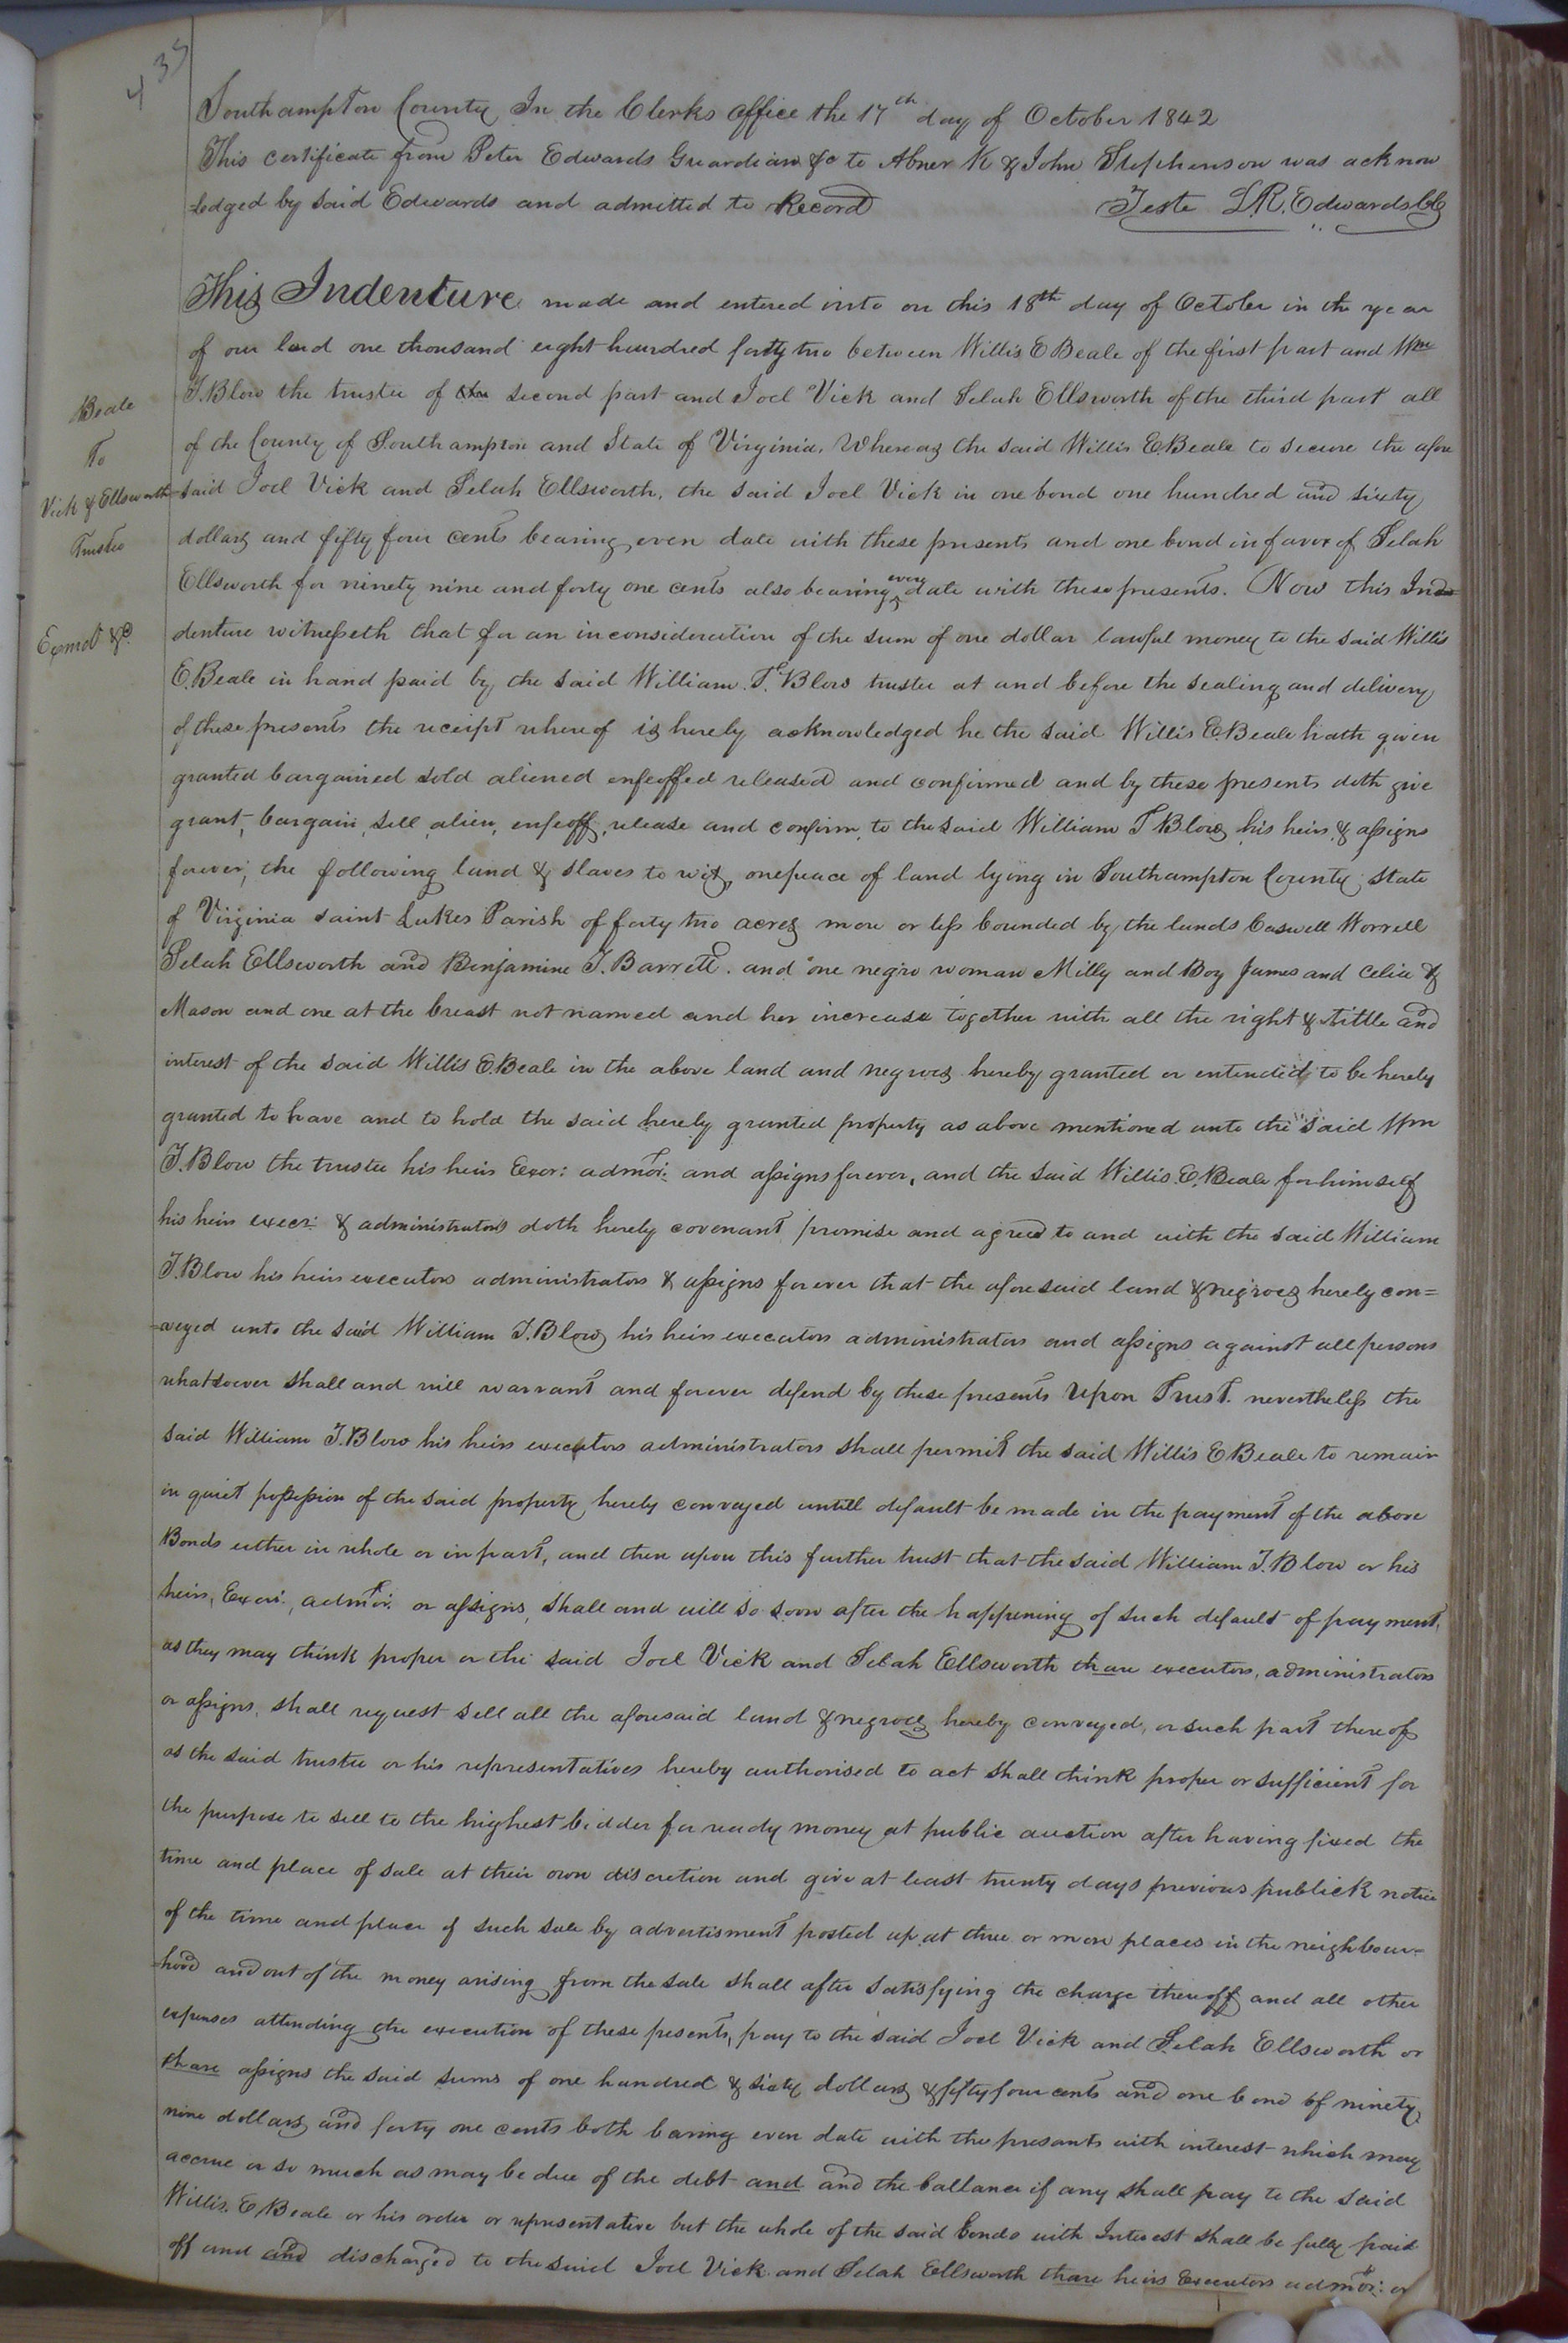 435
Southampton County In the Clerks office the 17th day of October 1842
This certificate from Peter Edwards Guardian &c to Abner K & John Stephenson was acknow
-ledged by said Edwards and admitted to Record Teste L.R. Edwards CC
This Indenture made and entered into on this 18th day of October in the year
of our lord one thousand eight hundred forty two between Willis E Beale of the first part and Wm
T. Blow the trustee of the second part and Joel Vick and Selah Ellsworth of the third part all
Beale
To
Vick & Ellsworth
Trustee
of the County of Southampton and State of Virginia. Whereas the said Willis E. Beale to secure the afore
said Joel Vick and Selah Ellsworth, the said Joel Vick in one bond one hundred and sixty
dollars and fifty four cents bearing even date with these presents and one bond in favor of Selah
Ellsworth for ninety nine and forty one cents also bearing even date with these presents. Now this In
Exmd &c.
denture witnesseth that for an inconsideration of the sum of one dollar lawful money to the said Willis
E. Beale in hand paid by the said William T. Blow trustee at and before the sealing and delivery
of these presents the receipt whereof is hereby acknowledged he the said Willis E. Beale hath given
granted bargained sold aliened enfeoffed released and confirmed and by these presents doth give
grant, bargain, sell, alien, enfeoff, release and confirm, to the said William T Blow, his heirs, & assigns
forever, the following land & slaves to wit, onepeace of land lying in Southampton County State
of Virginia saint Lukes Parish of forty two acres more or less bounded by the lands Caswell Worrell
Selah Ellsworth and Benjamine T. Barrett. and one negro woman Milly and Boy James and Celia &
Mason and one at the breast not named and her increase together with all the right & tittle and
interest of the said Willis E. Beale in the above land and negroes hereby granted or entended to be hereby
granted to have and to hold the said hereby granted property as above mentioned unto the said Wm
T. Blow the trustee his heirs Exor: admor: and assigns forever, and the said Willis. E. Beale for himself
his heirs execr: & administrators doth hereby covenant promise and agreed to and with the said William
T. Blow his heirs executors administrators & assigns forever that the aforesaid land & negroes hereby con=
-veyed unto the said William T. Blow, his heirs executors administrators and assigns against all persons
whatsoever shall and will warrant and forever defend by these presents Upon Trust. nevertheless the
said William T. Blow his heirs executors administrators shall permit the said Willis E Beale to remain
in quiet possession of the said property hereby conveyed untill default be made in the payment of the above
Bonds either in whole or in part, and then upon this further trust that the said William T. Blow or his
heirs, Exors:, admor: or assigns, shall and will so soon after the happening of such default of payment,
as they may think proper or the said Joel Vick and Selah Ellsworth thare executors, administrators
or assigns, shall request sell all the aforesaid land & negroes hereby conveyed, or such part thereof
as the said trustee or his representatives hereby authorised to act shall think proper or sufficient for
the purpose to sell to the highest bidder for ready money at public auction after having fixed the
time and place of sale at their own discretion and give at least twenty days previous publick notice
of the time and place of such sale by advertisment posted up at three or more places in the neighbour=
-hood and out of the money arising from the sale shall after satisfying the charge thereoff and all other
expenses attending the execution of these presents, pay to the said Joel Vick and Selah Ellsworth or
thare assigns the said sums of one hundred & sixty dollars & fifty four cents and one bond of ninety
nine dollars and forty one cents both baring even date with the presants with interest which may
accrue or so much as may be due of the debt and and the ballance if any shall pay to the said
Willis. E Beale or his order or representative but the whole of the said bonds with Interest shall be fully paid
off and and discharged to the said Joel Vick and Selah Ellsworth thare heirs Executors admor: or